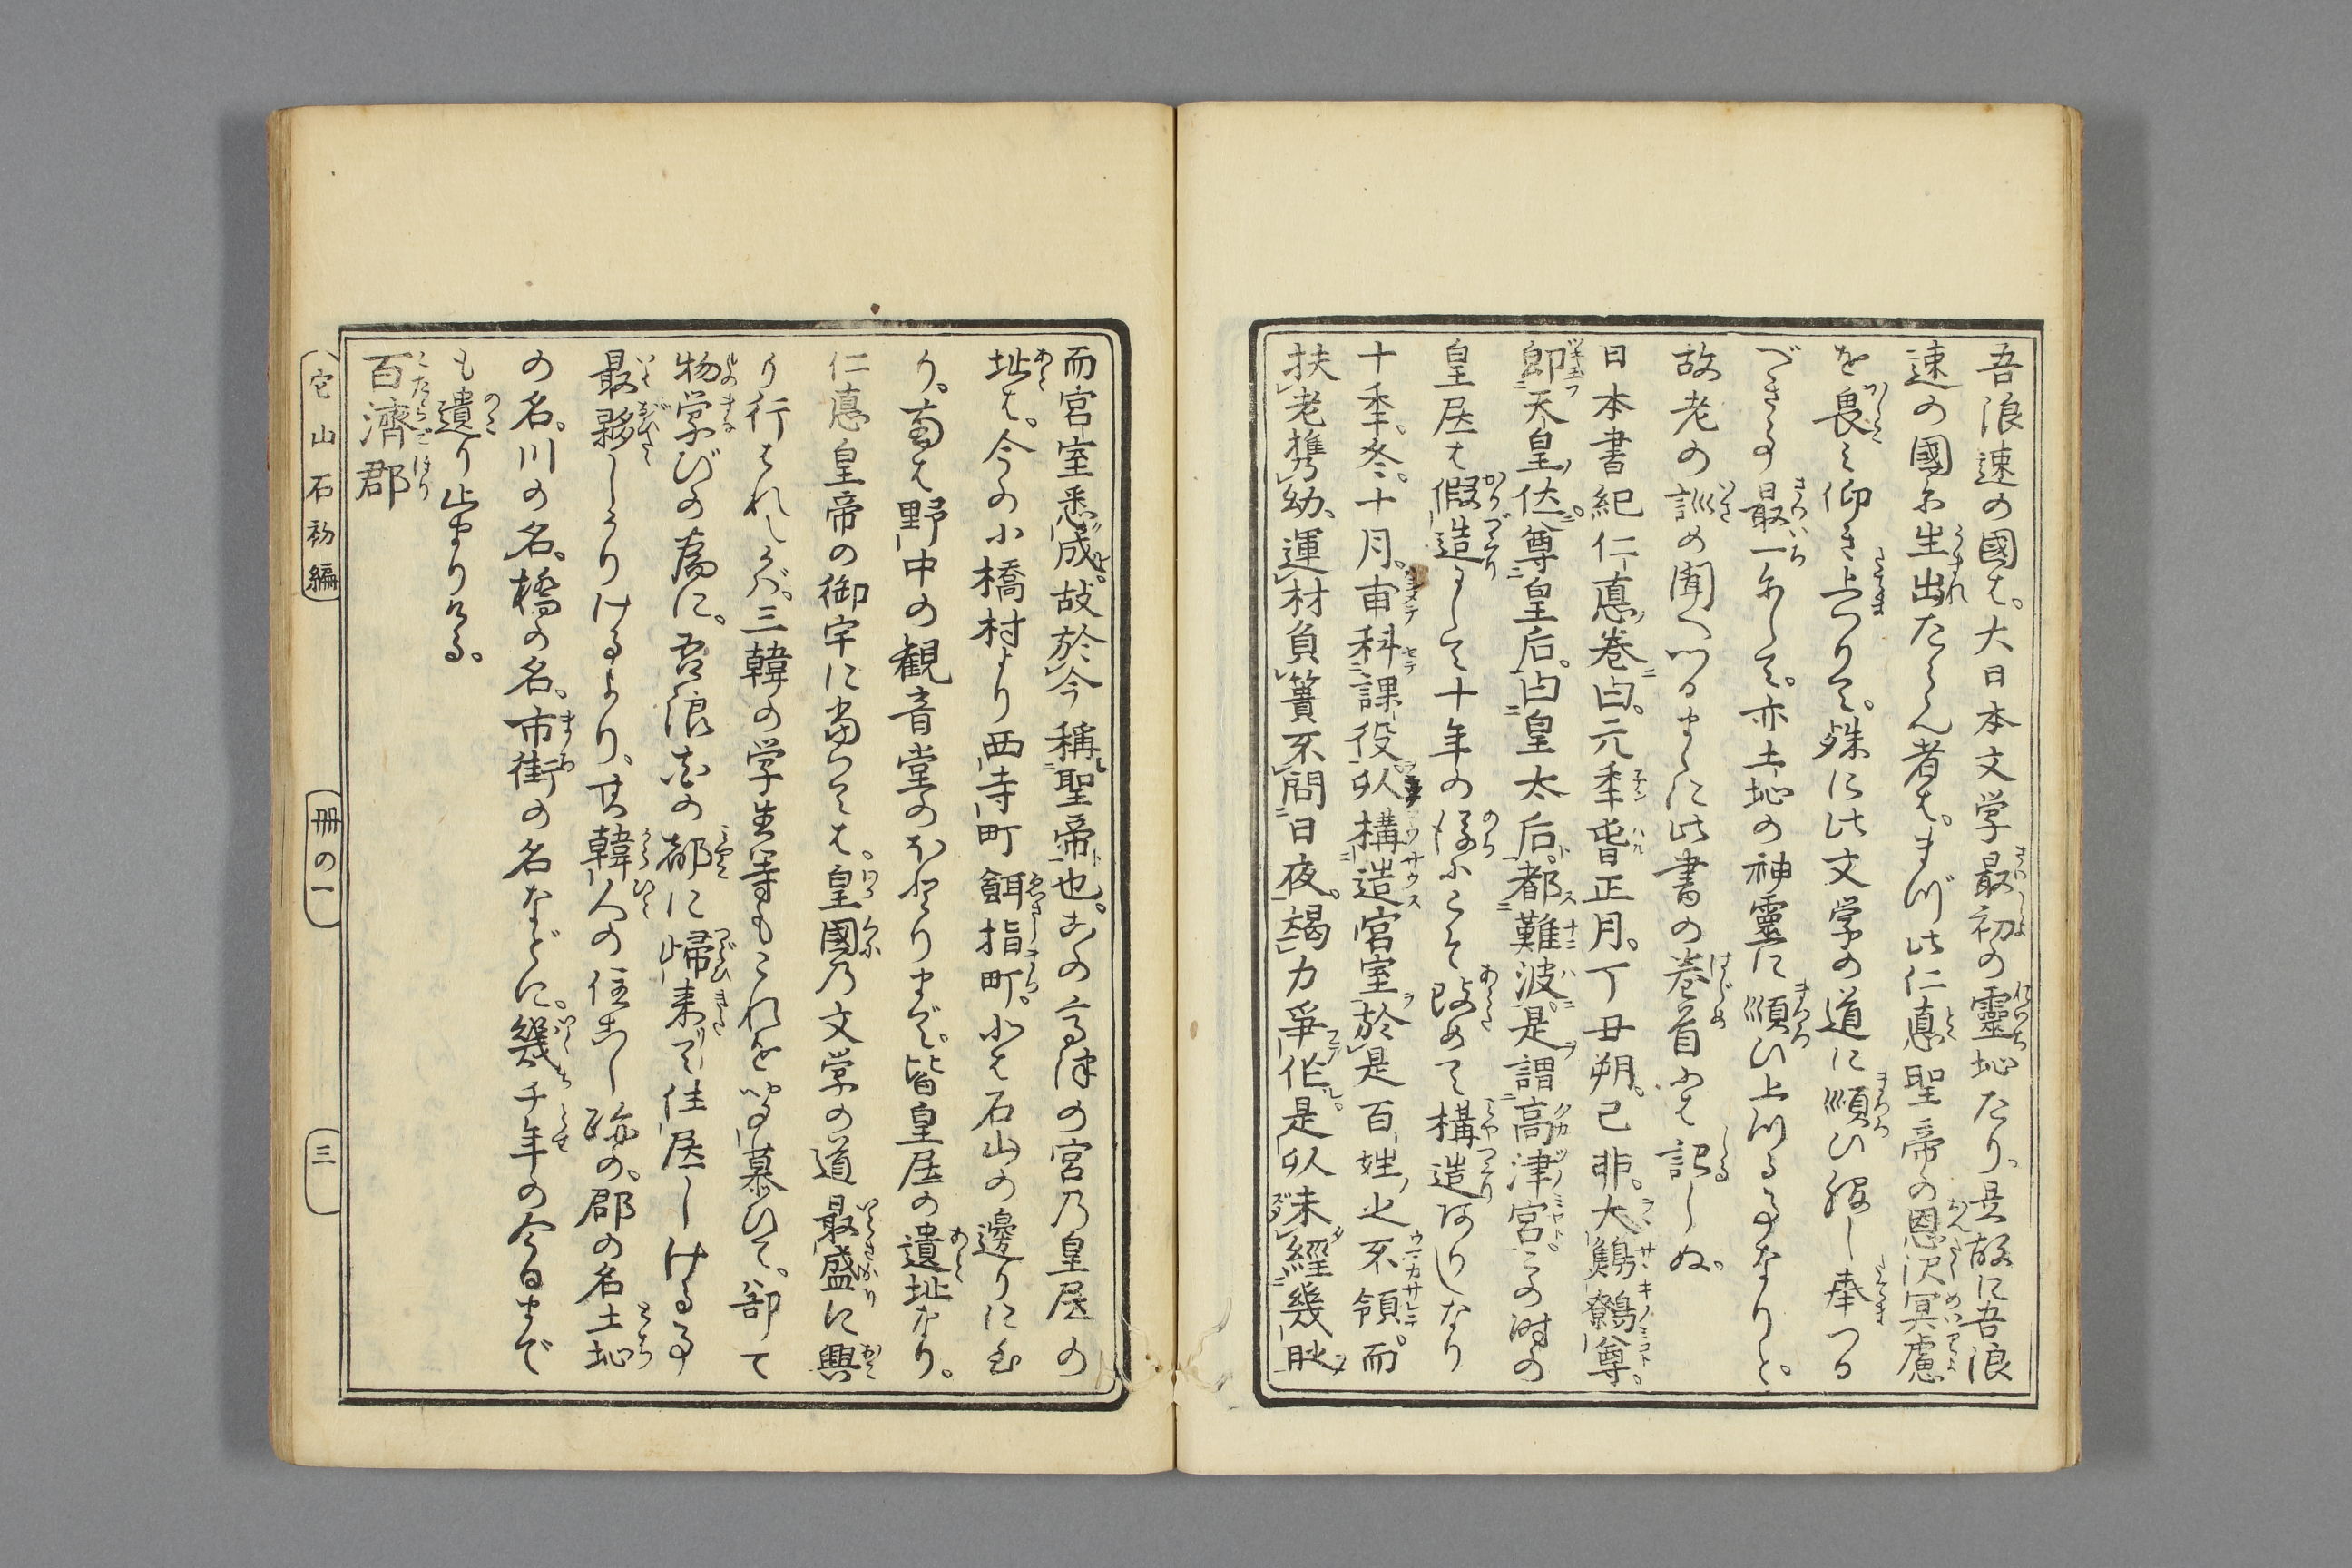 吾浪速の國は。大日本文学最初の靈地たり。其故に吾浪
速の國に生出たらん者は。まづ此仁悳聖帝の恩沢冥慮
を畏み仰き上つりて。殊に此文学の道に順ひ服し奉つる
べき事最一にして。亦土地の神靈に順ひ上つる事なりと。
故老の訓め聞へつるまゝに此書の巻首には記しぬ。
日本書紀仁悳巻曰。元季春正月。丁丑朔。己卯。大鷦鷯尊。
即天皇位。尊皇后。曰皇太后。都難波。是謂高津宮。この時の
皇居は假造にして十年の後にこそ改めて構造ありしなり
十季。冬。十月。甫科課役。以構造宮室。於是百姓之不領。而
扶老携幼。運材負簣不問日夜。竭力爭作。是以未經幾時
而宮室悉成。故於今稱聖帝也。この高津の宮乃皇居の
址は。今の小橋村より西寺町餌指町。北は石山の邊りに至
り。南は野中の観音堂のほとりまで。皆皇居の遺址なり。
仁悳皇帝の御宇に當りては。皇國乃文学の道最盛に興
り行はれしかバ。三韓の学生等もこれを聞慕ひて。都て
物学びの為に。吾浪花の都に帰来て住居しける事
最夥しかりけるより。其韓人の住し跡の。郡の名土地
の名。川の名。橋の名。市街の名などに。幾千年の今日まで
も遺り止まりける。
百濟郡
宅山石初編
冊の一
三